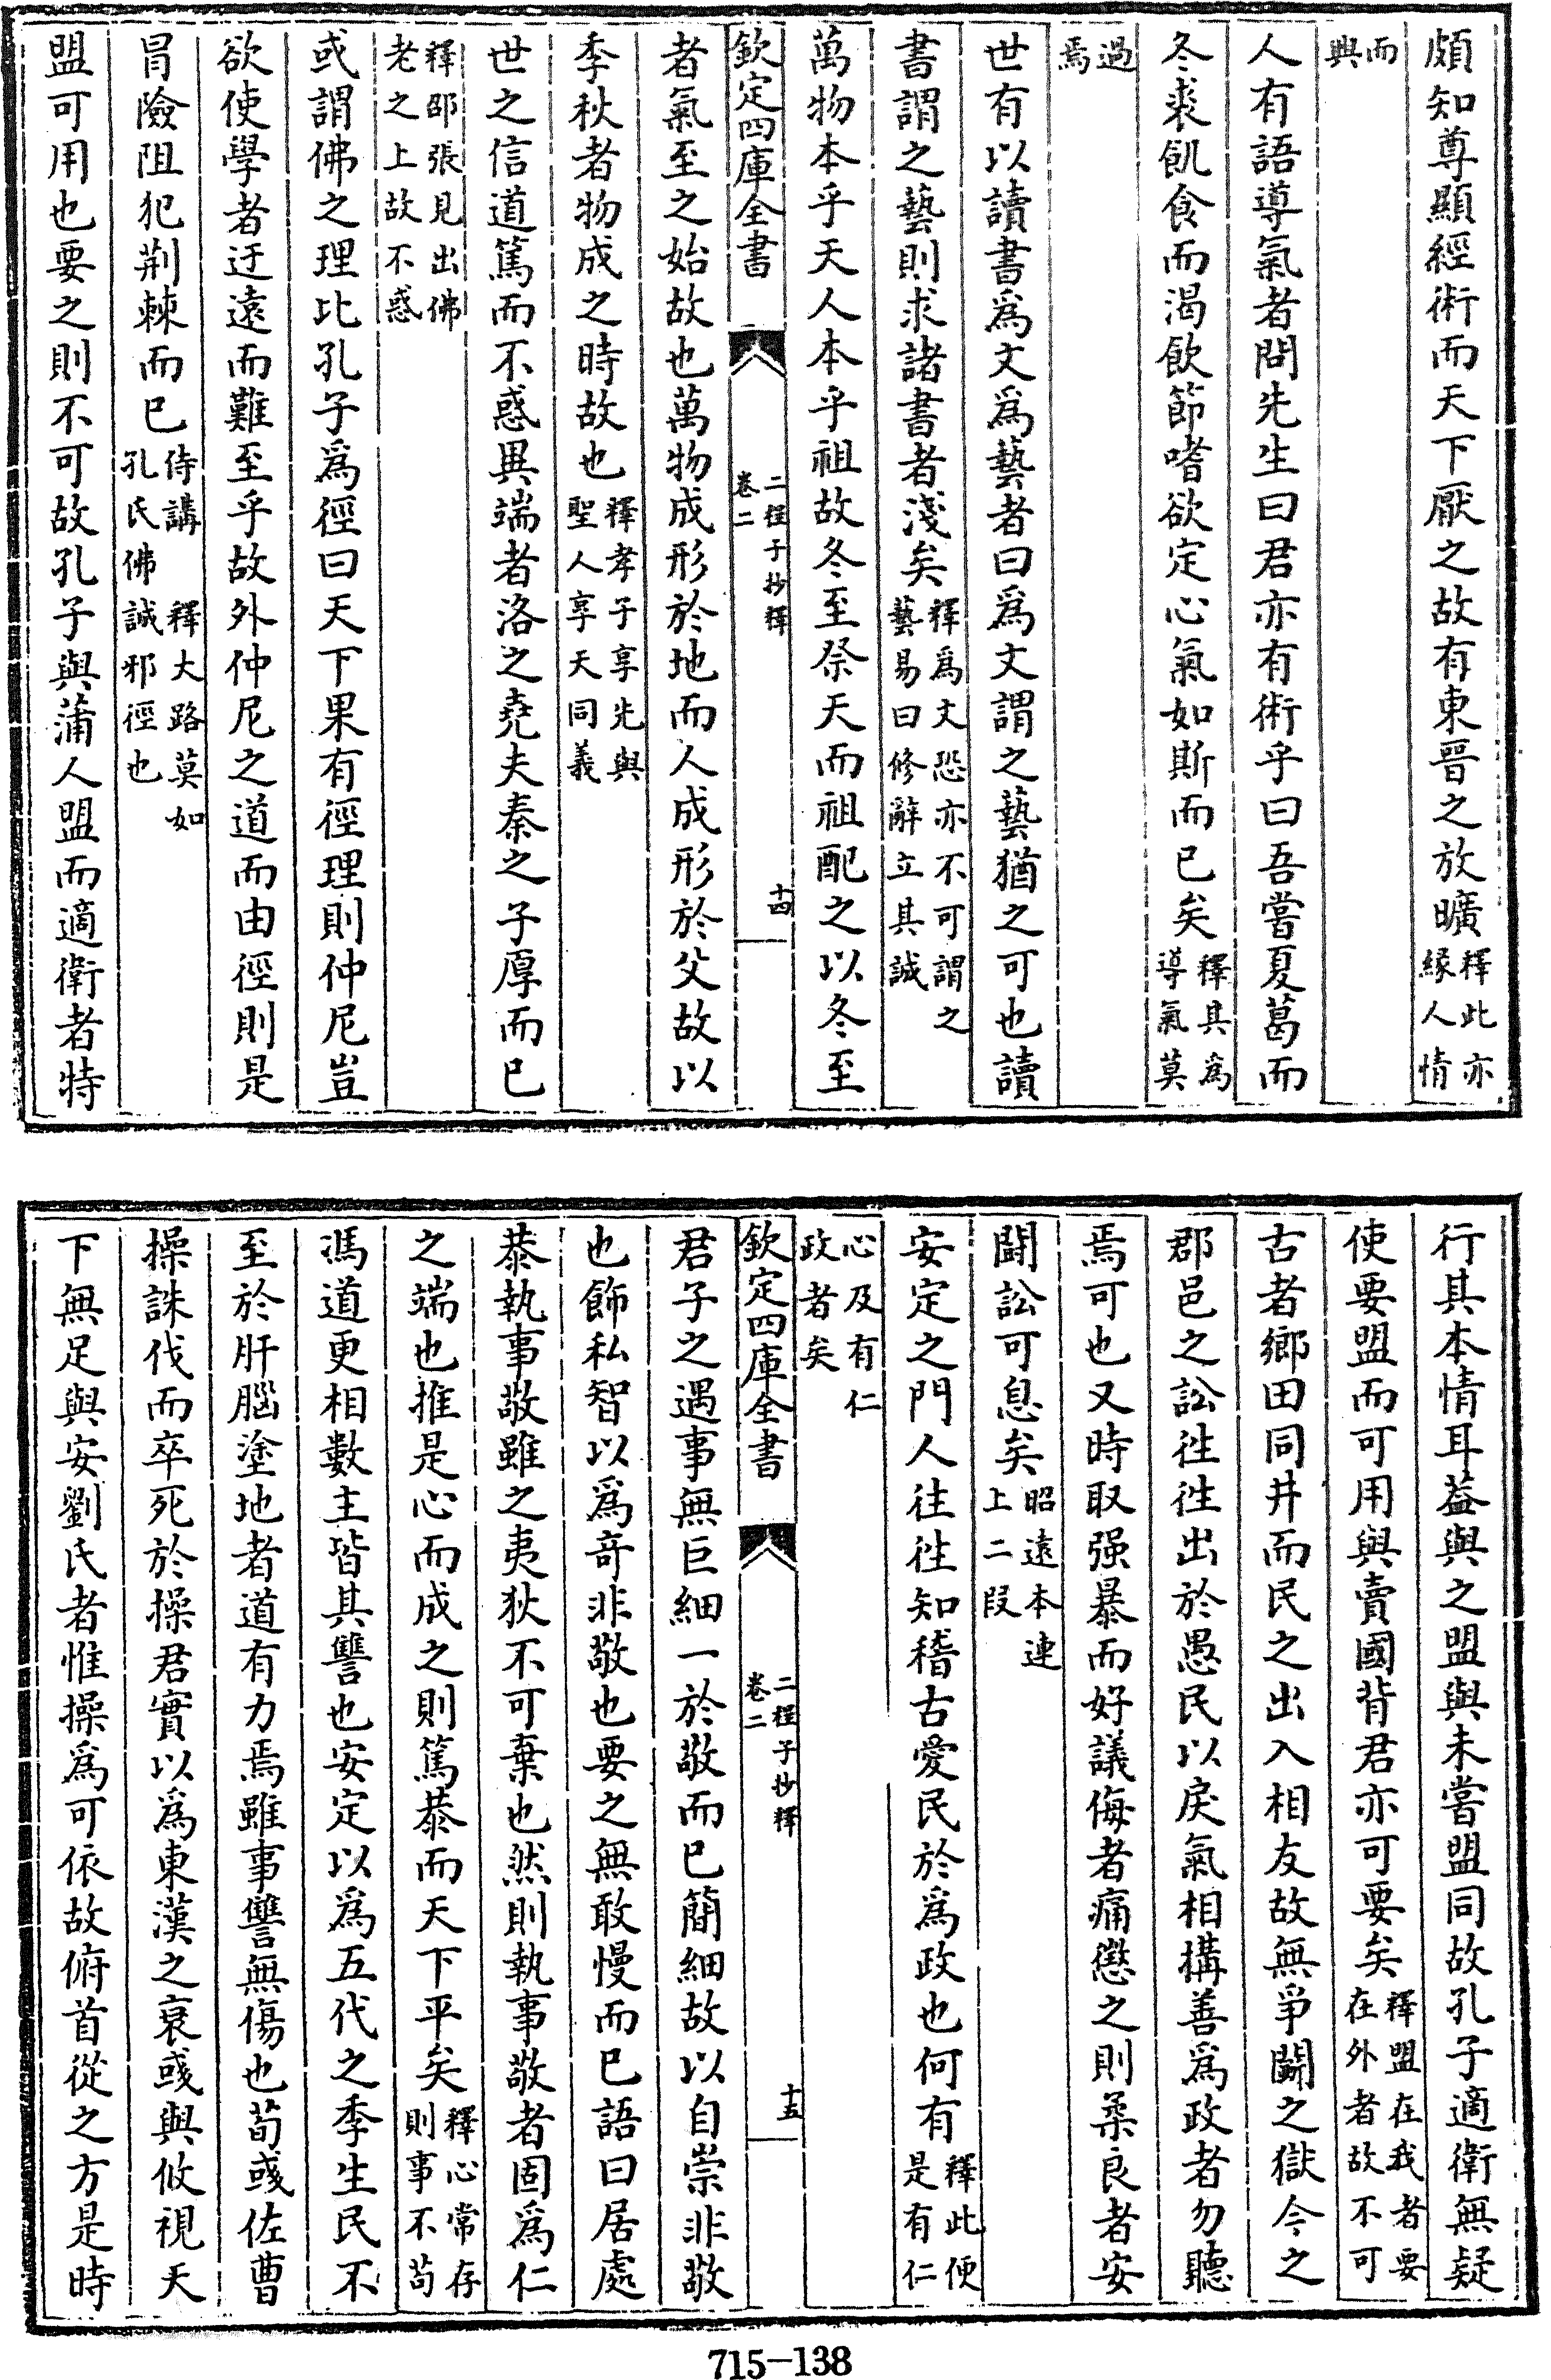 頗知尊顯經術而天下厭之故有東晉之放曠釋此亦緣人情
而與
人有語導氣者問先生曰君亦有術乎曰吾嘗夏葛而
冬裘飢食而渴飲節嗜欲定心氣如斯而已矣釋其為導氣莫
過焉
世有以讀書為文為藝者曰為文謂之藝猶之可也讀
書謂之藝則求諸書者淺矣釋為文恐亦不可謂之藝易曰修辭立其誠
萬物本乎天人本乎祖故冬至祭天而祖配之以冬至
欽定四庫全書 二程子抄釋卷二 十四
者氣至之始故也萬物成形於地而人成形於父故以
季秋者物成之時故也釋孝子享先與聖人享天同義
世之信道篤而不惑異端者洛之堯夫秦之子厚而已
釋邵張見出佛老之上故不惑
或謂佛之理比孔子為徑曰天下果有徑理則仲尼豈
欲使學者迂遠而難至乎故外仲尼之道而由徑則是
冒險阻犯荆棘而已侍講 釋大路莫如孔氏佛誠邪徑也
盟可用也要之則不可故孔子與蒲人盟而適衛者特
行其本情耳葢與之盟與未嘗盟同故孔子適衛無疑
使要盟而可用與賣國背君亦可要矣釋盟在我者要在外者故不可
古者鄉田同井而民之出入相友故無爭鬭之獄今之
郡邑之訟往往出於愚民以戾氣相搆善為政者勿聽
焉可也又時取强暴而好譏侮者痛懲之則柔良者安
鬭訟可息矣昭遠本連上二段
安定之門人往往知稽古愛民於為政也何有釋此便是有仁
心及有仁政者矣
欽定四庫全書 二程子抄釋卷二 十五
君子之遇事無巨細一於敬而已簡細故以自崇非敬
也飾私智以為奇非敬也要之無敢慢而已語曰居處
恭執事敬雖之夷狄不可棄也然則執事敬者固為仁
之端也推是心而成之則篤恭而天下平矣釋心常存則事不苟
馮道更相數主皆其讐也安定以為五代之季生民不
至於肝腦塗地者道有力焉雖事讐無傷也荀彧佐曹
操誅伐而卒死於操君實以為東漢之衰彧與攸視天
下無足與安劉氏者惟操為可依故俯首從之方是時
715-138